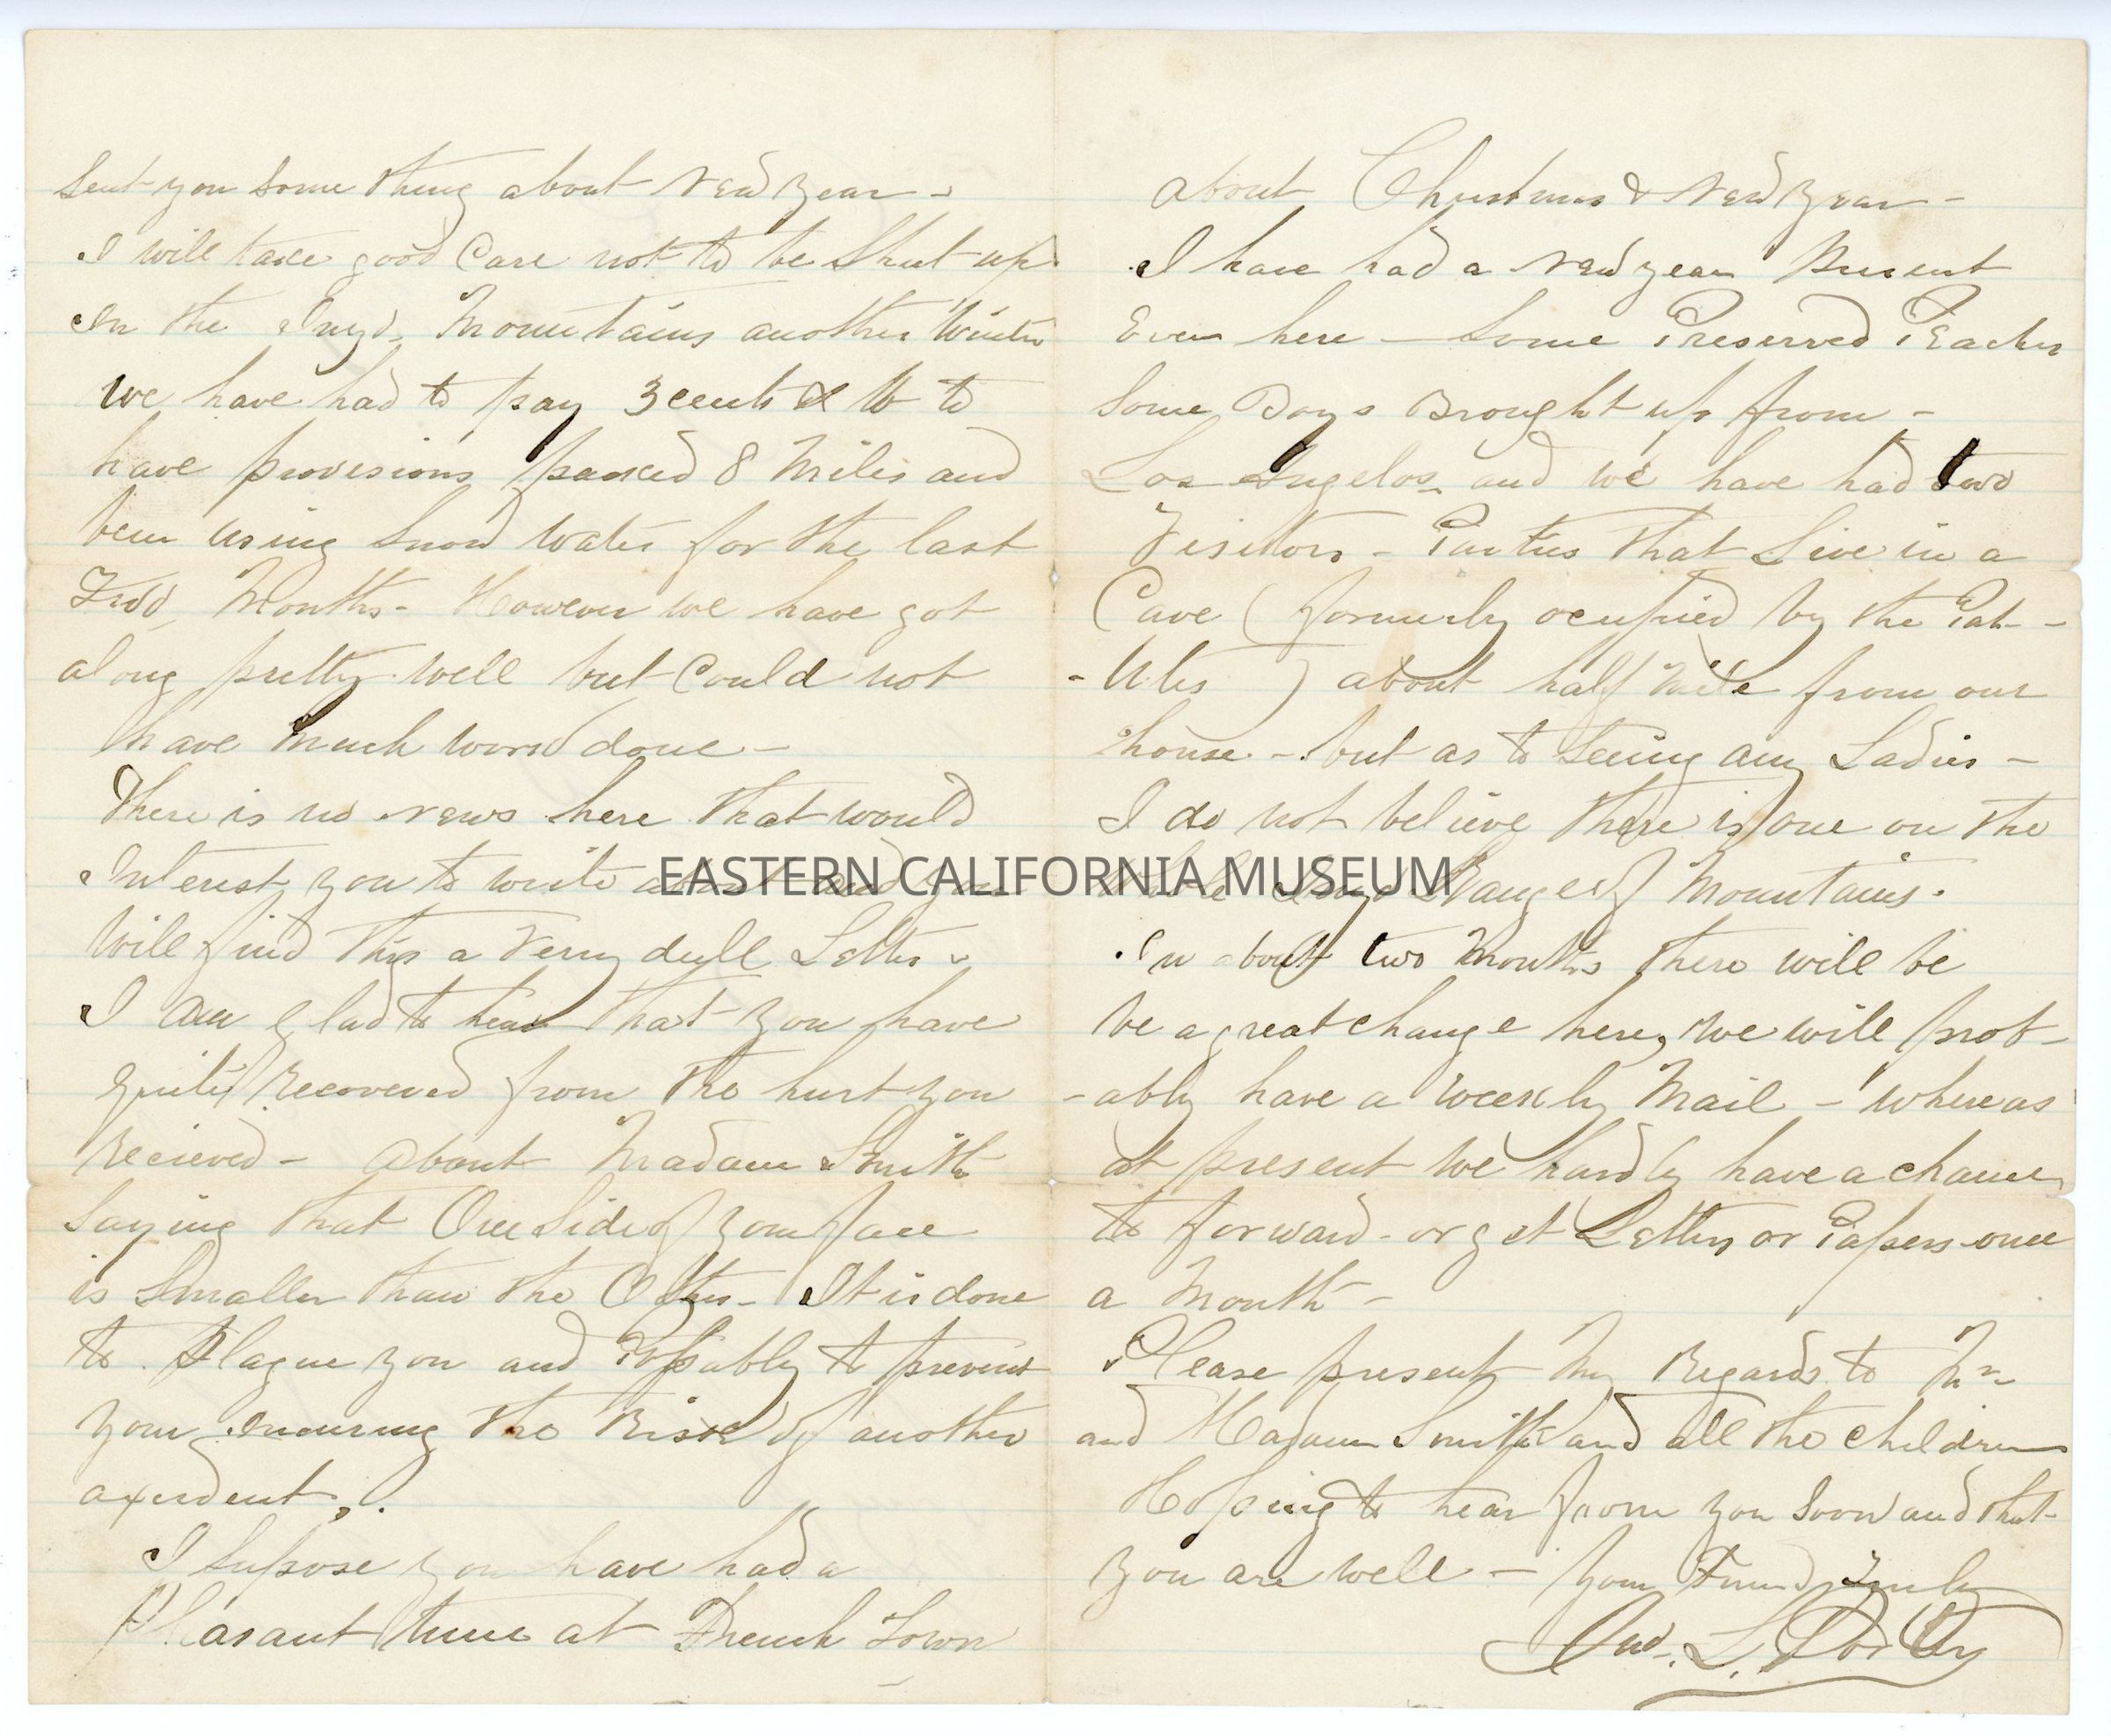 Sent you some thing about New Year -
I will take good Care not to be Shut up
in the Inyo Mountains another Winter
we have had to pay 3 cents a lb to
have provisions packed 8 Miles and
been using Snow Water for the last
Two Months - However we have got
along pretty well but Could not
have much work done -
There is no news here that would
Interest you to write about and you
Will find this a Very dull Letter -
I am glad to hear that you have
quite recovered from the hurt you
recieved - about Madam Smith
Saying that One Side of your face
is Smaller than the Other - It is done
to Plague you and Possibly to prevent
your incuring the Risk of another
axendent.
I Supose you have had a
Pleasant time at French Town
about Christmas & New Year -
I have had a New year Present
Even here - Some Preserved Peaches
Some Boys Brought up from -
Los Angelos and we have had two
Visitors - Parties that Live in a
Cave (formerly ocupied by the Pah -
- Utes) about half Mile from our
house - but as to Seeing any Ladies -
I do not believe there is one on the
whole Inyo Range of Mountains.
In about two Months there will be
be a great change here, we will prob -
- ably have a weekly Mail - whereas
at present we hardly have a chance
to forward - or get Letters or Papers once
a Month -
Please present My Regards to Mr
and Madam Smith and all the children
Hoping to hear from you Soon and that
you are well - Your Friend Truly
Jno. L. Porter
EASTERN CALIFORNIA MUSEUM